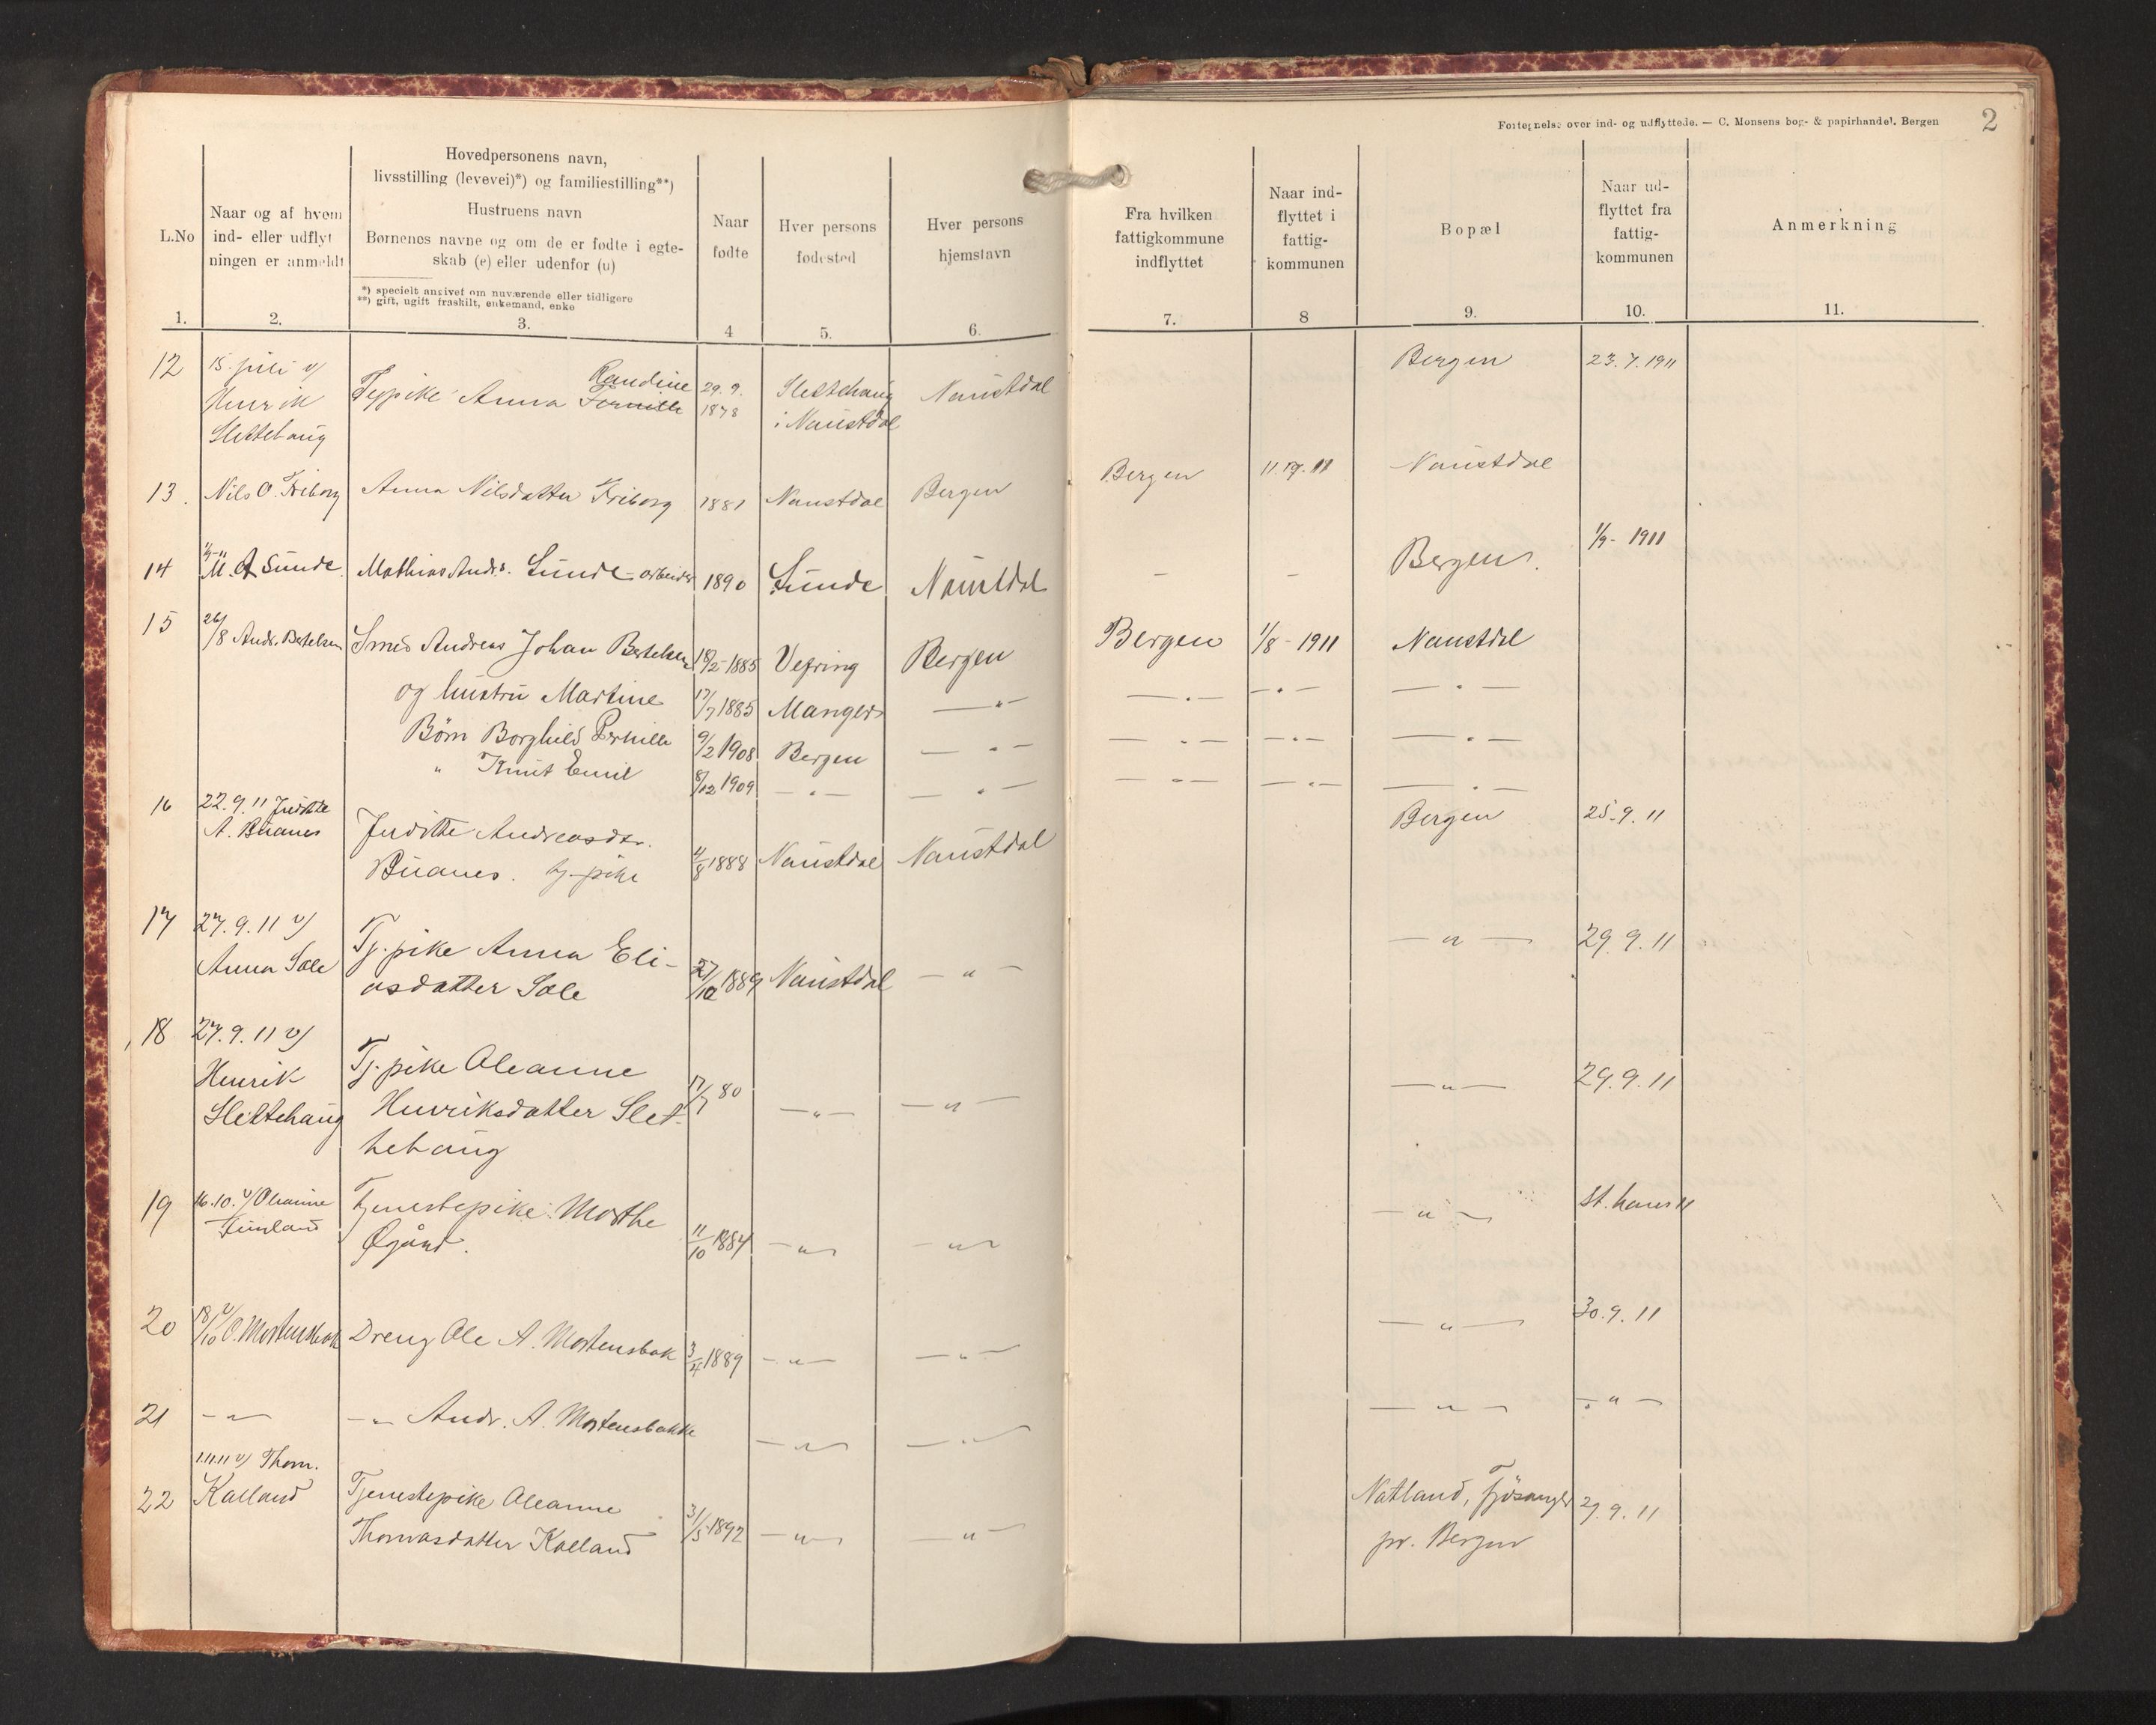 Fortegnelse over ind- og udflyttede. — C. Monsens bog- & papirhandel. Bergen
2
L.No
Naar og af hvem
ind- eller udflyt
ningen er anmeldt
Hovedpersonens navn,
livsstilling (levevei)*) og familiestilling**)
Hustruens navn
Børnenes navne og om de er fødte i egte-
skab (e) eller udenfor (u)
*) specielt angivet om nuværende eller tidligere
**) gift, ugift fraskilt, enkemand, enke
Naar
fødte
Hver persons
fødested
Hver persons
hjemstavn
Fra hvilken
fattigkommune
indflyttet
Naar ind-
flyttet i
fattig-
kommunen
Bopæl
Naar ud-
flyttet fra
fattig-
kommunen
Anmerkning
1. 2. 3. 4 5. 6. 7. 8 9. 10. 11.
12 15. juli v/ Bergen 23.7.1911
Henrik Tjpike Anna Randine 29.9. Slettehaug Naustdal
Slettehaug 1878 i Naustdal
13. Nils O. Friborg Anna Nilsdatter Friborg 1881 Naustdal Bergen Bergen Naustdal
14 M. A Sunde Mathias Andr. Sunde - arbeider 1890 Sunde Naustdal — — Bergen. 1/9 - 1911
15 26/8 Andr. Bertelsen Smed Andreas Johan Bertelsen 18/2-1885 Vefring Bergen Bergen 1/8 - 1911 Naustdal
og hustru Martine 17/7 1885 Manger — " — — " — — " — — " —
Børn Borghild Pernille 9/2 1908 Bergen — " — — " — — " — — " —
" Knut Emil 8/12 1909 — " — — " — — " — — " — — " —
16 22.9.11 Juditte Bergen 25.9.11
A. Buanes Juditte Andreasdtr.
Buanes. tj-pike 4/8 1888 Naustdal Naustdal
17 27.9.11 v/ — " — 29.9.11
Anna Sole Tj. pike Anna Eli-
asdatter Sole 1889 Naustdal — " —
18 27.9.11 v/
Henrik Tj. pike Oleanne 17/7 80 — " — 29.9.11
Slettehaug Henriksdatter Slet- — " — — " —
tehaug
19 16.10. v/ Oleanne Tjenestepike Marthe — " — St. hans 11
Øgård. 11/10 1884 — " — — " —
20 18/10 v/ O. Mortensbak Dreng Ole A. Mortensbak 3/4 1889 — " — — " — — " — 30.9.11
21 — " — — " — Andr. A. Mortensbakke — " — — " — — " — — " —
1.11.11 v/ Thom.
22 Kalland Tjenestepike Oleanne Natland, Fjøsanger 29.9.11
Thomasdatter Kalland 31/5 1892 — " — — " — pr. Bergen